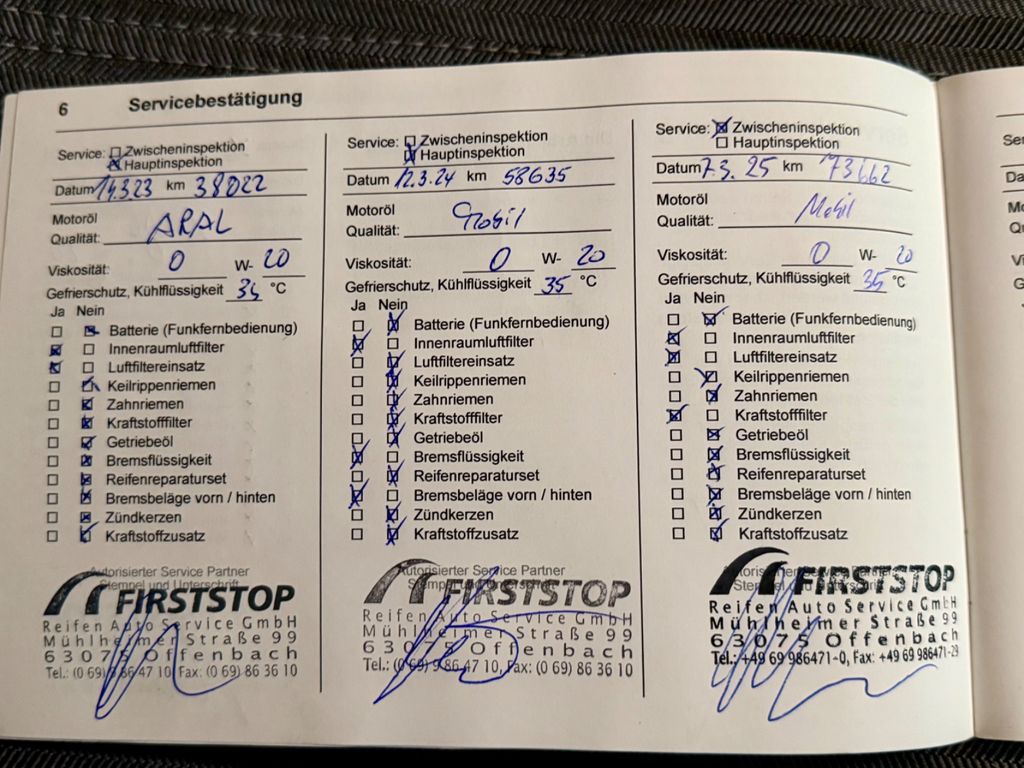 6 Servicebestätigung
Service: Zwischeninspektion
Hauptinspektion
Datum 14.3.23 km 38022
Motoröl
Qualität: ARAL
Viskosität: 0 W- 20
Gefrierschutz, Kühlflüssigkeit 35 °C
Ja Nein
Batterie (Funkfernbedienung)
Innenraumluftfilter
Luftfiltereinsatz
Keilrippenriemen
Zahnriemen
Kraftstofffilter
Getriebeöl
Bremsflüssigkeit
Reifenreparaturset
Bremsbeläge vorn / hinten
Zündkerzen
Kraftstoffzusatz
Autorisierter Service Partner
Stempel und Unterschrift
FIRSTSTOP
Reifen Auto Service GmbH
Mühlheimer Straße 99
63075 Offenbach
Tel.: (0 69) 9 86 47 10, Fax: (0 69) 86 36 10
Service: Zwischeninspektion
Hauptinspektion
Datum 12.3.24 km 58635
Motoröl
Qualität: Mobil
Viskosität: 0 W- 20
Gefrierschutz, Kühlflüssigkeit 35 °C
Ja Nein
Batterie (Funkfernbedienung)
Innenraumluftfilter
Luftfiltereinsatz
Keilrippenriemen
Zahnriemen
Kraftstofffilter
Getriebeöl
Bremsflüssigkeit
Reifenreparaturset
Bremsbeläge vorn / hinten
Zündkerzen
Kraftstoffzusatz
Autorisierter Service Partner
Stempel und Unterschrift
FIRSTSTOP
Reifen Auto Service GmbH
Mühlheimer Straße 99
63075 Offenbach
Tel.: (0 69) 9 86 47 10, Fax: (0 69) 86 36 10
Service: Zwischeninspektion
Hauptinspektion
Datum 7.3.25 km 73662
Motoröl
Qualität: Mobil
Viskosität: 0 W- 20
Gefrierschutz, Kühlflüssigkeit 35 °C
Ja Nein
Batterie (Funkfernbedienung)
Innenraumluftfilter
Luftfiltereinsatz
Keilrippenriemen
Zahnriemen
Kraftstofffilter
Getriebeöl
Bremsflüssigkeit
Reifenreparaturset
Bremsbeläge vorn / hinten
Zündkerzen
Kraftstoffzusatz
Autorisierter Service Partner
Stempel und Unterschrift
FIRSTSTOP
Reifen Auto Service GmbH
Mühlheimer Straße 99
63075 Offenbach
Tel.: +49 69 986471-0, Fax: +49 69 986471-29